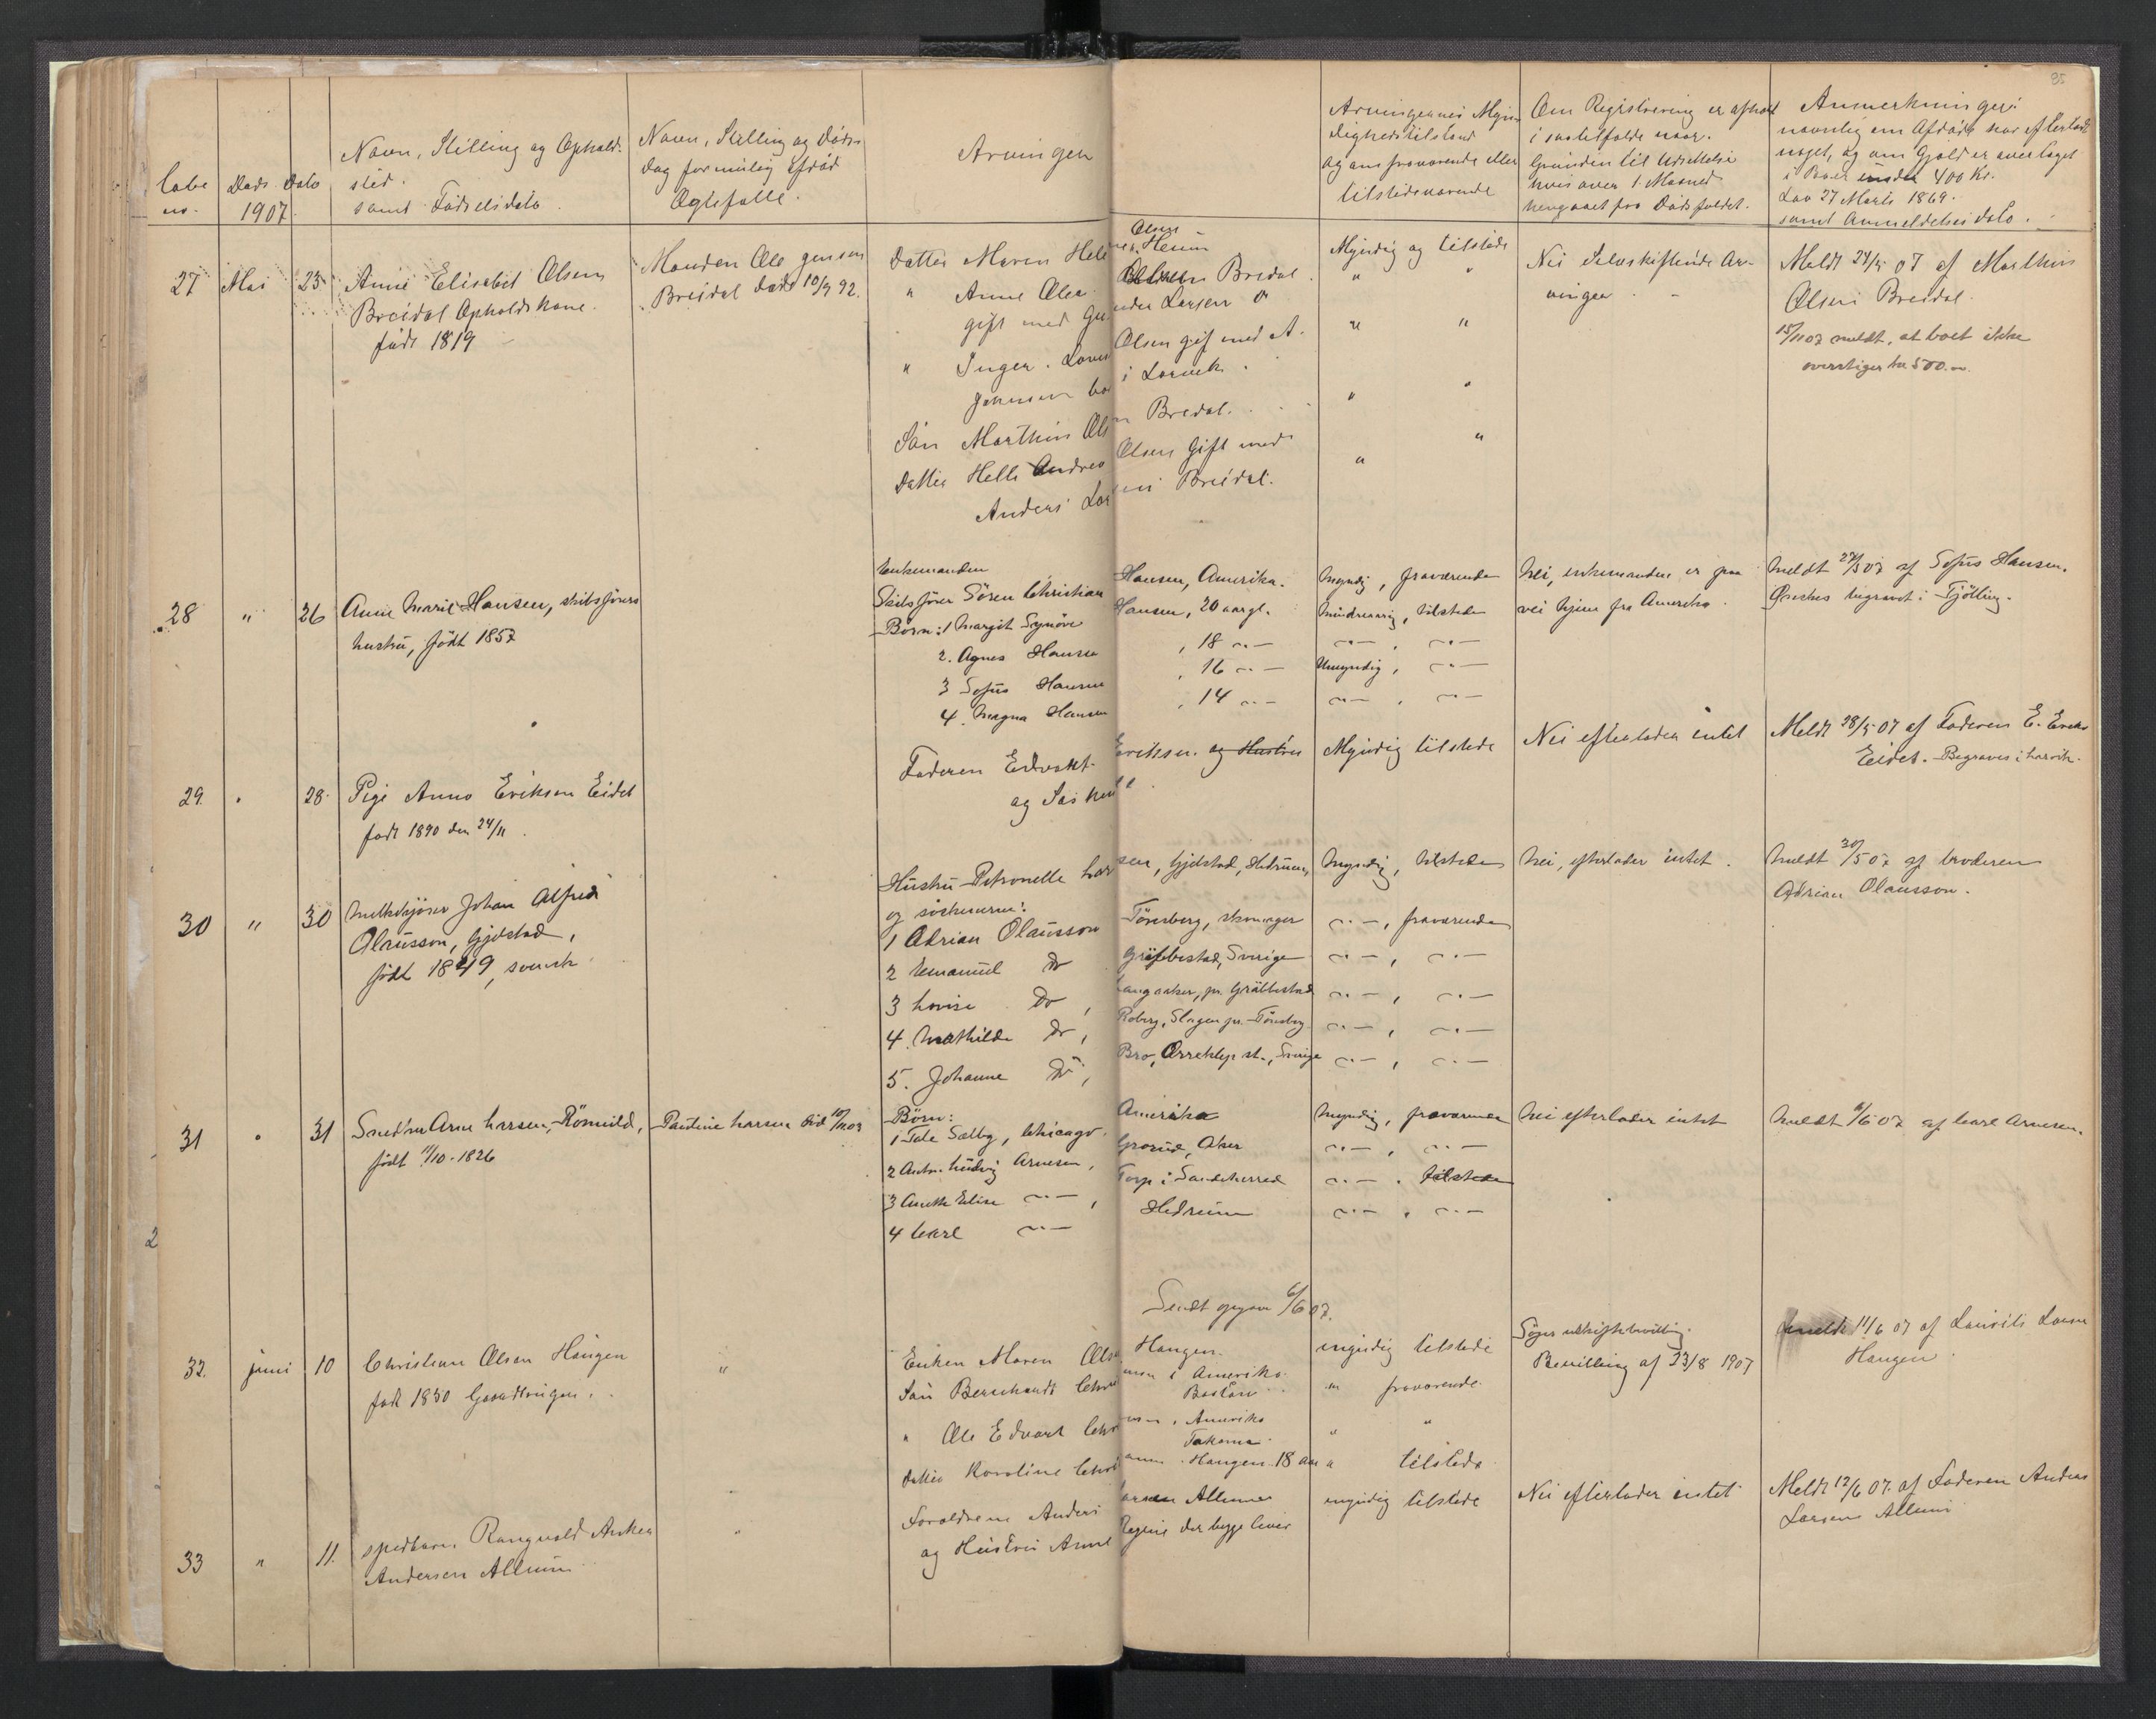 85
Løbe no.
Døds Dato 1907.
Navn, Stilling og Ophold-sted. samt Fødselsdato.
Navn, Stilling og Døds-dag formulig afdød Ægtefælle.
Arvinger
Arvingernes Myn-dighedstilstand og om fraværende eller tilstedeværende
Om Registrering er afholdt i saatilfælde naar. Grunden til Udsættelse hvis over 1 Maaned hengaaet fra Dødsfaldet.
Anmerkninger: navnlig om Afdøde har efterladt noget, og om Gjæld er overtaget i Boer under 400 Kr. Lov 27 Marts 1869. samt Anmeldelsesdato.
27 Mai 23 Anne Elisabet Olsen
Breidal Opholdskone.
født 1819
Manden Ole Jensen
Breidal død 10/9 92.
Datter Maren Hele Olsen Heum
" Anne Olea Bredal
gift med Gu Larsen
" Inger. Lovis Olsen gif med A.
Johnsen bo i Larvik.
Søn Marthin Ols Bredal.
Datter Helle Andrea Olsen Gift med
Anders Lar Breidal.
Myndig og tilstede
" "
" "
" "
" "
Nei Selvskiftende Ar-
vinger.
Meldt 24/5 07 af Marthin
Olsen Breidal.
15/11 07 meldt, at boet ikke
overstiger kr 500.
28 " 26 Anne Marie Hansen, skibsførers
hustru, født 1857
Enkemanden
Skibsfører Sören Christian Hansen, Amerika.
Børn: 1 Margit Synöve Hansen, 20 aargl.
2. Agnes Hansen, 18 -"-
3 Sofus Hansen, 16 -"-
4. Magna Hansen, 14 -"-
Myndig, fraværende
Mindreaarig, tilstede
-"- , -"-
Umyndig, -"-
-"- , -"-
Nei, enkemanden er paa
vei hjem fra Amerika.
Meldt 27/5 07 af Sofus Hansen.
Ønskes begravet i Tjølling.
29. " 28. Pige Anna Eriksen Eidet
født 1890 den 24/11.
Faderen Edvart Eriksen. og Hustru
og Søsken
Myndig tilstede
Nei efterlader intet
Meldt 28/5 07 af Faderen E. Eriks
Eidet. Begraves i Larvik.
30 " 30 Melkekjører Johan Alfred
Olausson, Gjøstad,
født 1849, svensk
Hustru Petronelle Larsen, Gjøstad, Hedrum,
og søsknerne:
1 Adrian Olausson Tönsberg, skomager
2 Emanuel Do Gräbbestad, Sverige
3 Lovise Do, Langaaker, pr. Gräbbestad
4. Mathilde Do, Roberg, Slagen pr. Tönsberg
5. Johanne Do, Bro, st., Sverige
Myndig, tilstede
-"-, fraværende
-"- , -"-
-"- , -"-
-"- , -"-
-"- , -"-
Nei, efterlader intet.
Meldt 30/5 07 af broderen
Adrian Olausson.
31 " 31 Arne Larsen, Römild,
født 11/10-1826
Pauline Larsen död 10/11 03
Börn:
1 Tale Sælby, Chicago. Amerika
2 Anton Ludvig Arnesen, Grorud, Aker
3 Anette Elise -"-, Torp i Sandeherred
4 Carl -"- Hedrum
Myndig, fraværende
-"- , -"-
-"- . tilstede
-"- , -"-
Nei efterlader intet
Meldt 1/6 07 af Carl Arnesen.
Sendt opgave 6/6 07.
32. juni 10 Christian Olsen Haugen
født 1850 Gaardbruger.
"
Enken Maren Ols Haugen.
Søn Bernhardt Chri i Amerika
Boston
" Ole Edvart Chri , Amerika
Takoma
Datter Karoline Chri Haugen 18 aar
myndig tilstede
" fraværende.
" "
" tilstede
Søger uskiftebevilling.
Bevilling af 23/8 1907
meldt 11/6 07 af Laurits Larsen
Haugen
33 " 11. spedbarn Rangvald Anker
Andersen Allum
"
Foraldrene Anders Larsen Allum
og Hustru Anne Regine der begge lever
myndig tilstede
Nei efterlader intet
Meldt 12/6 07. af Faderen Anders
Larsen Allum